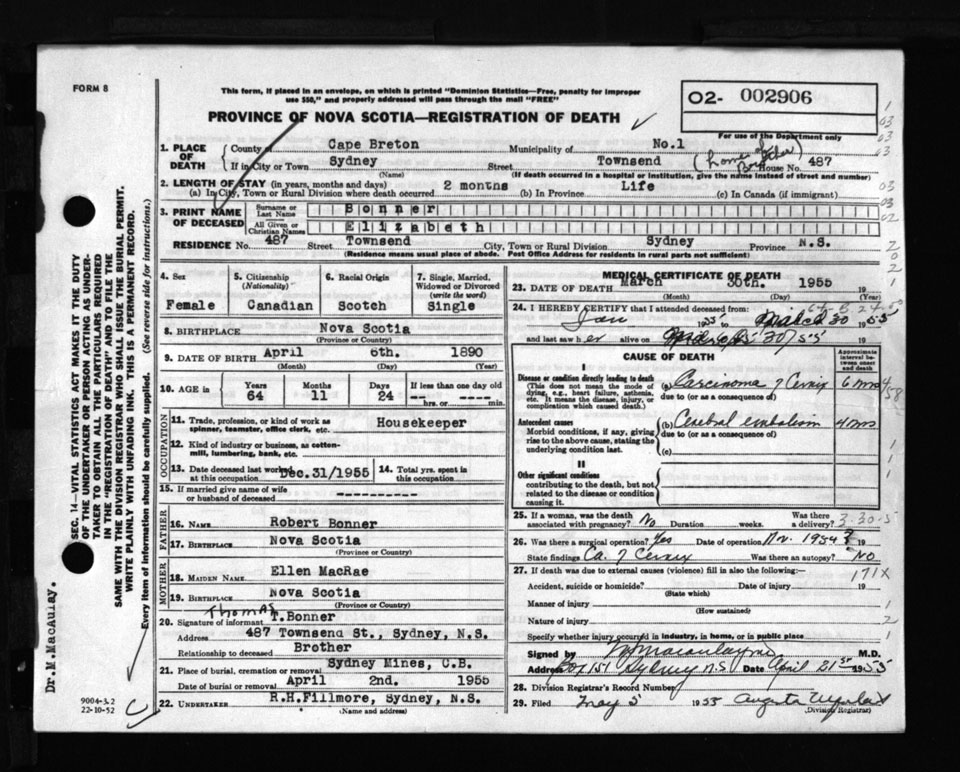 FORM 8
This form, if placed in an envelope, on which is printed "Dominion Statistics—Free, penalty for improper
use $50," and properly addressed will pass through the mail "FREE"
PROVINCE OF NOVA SCOTIA—REGISTRATION OF DEATH
02- 002906
For use of the Department only
1. PLACE OF DEATH County of Cape Breton Municipality of No.1
If in City or Town Sydney Street Townsend (home of Brother) House No. 487
(Name) (If death occurred in a hospital or institution, give the name instead of street and number)
2. LENGTH OF STAY (in years, months and days)
(a) In City, Town or Rural Division where death occurred 2 months (b) In Province Life (c) In Canada (if immigrant)
3. PRINT NAME OF DECEASED Surname or Last Name Bonner
All Given or Christian Names Elizabeth
RESIDENCE No. 487 Street Townsend City, Town or Rural Division Sydney Province N.S.
(Residence means usual place of abode. Post Office Address for residents in rural parts not sufficient)
4. Sex Female
5. Citizenship (Nationality) Canadian
6. Racial Origin Scotch
7. Single, Married, Widowed or Divorced (write the word) Single
8. BIRTHPLACE Nova Scotia
(Province or Country)
9. DATE OF BIRTH April 6th. 1890
(Month) (Day) (Year)
10. AGE in Years 64 Months 11 Days 24 If less than one day old
hrs. or min.
OCCUPATION
11. Trade, profession, or kind of work as spinner, teamster, office clerk, etc. Housekeeper
12. Kind of industry or business, as cotton-mill, lumbering, bank, etc.
13. Date deceased last worked at this occupation Dec.31/1955
14. Total yrs. spent in this occupation
15. If married give name of wife or husband of deceased ----------
FATHER
16. NAME Robert Bonner
17. BIRTHPLACE Nova Scotia
(Province or Country)
MOTHER
18. MAIDEN NAME Ellen MacRae
19. BIRTHPLACE Nova Scotia
(Province or Country)
Thomas
20. Signature of informant T.Bonner
Address 487 Townsend St., Sydney, N.S.
Relationship to deceased Brother
21. Place of burial, cremation or removal Sydney Mines, C.B.
Date of burial or removal April 2nd. 1955
22. UNDERTAKER R.H.Fillmore, Sydney, N.S.
(Name and address)
MEDICAL CERTIFICATE OF DEATH
23. DATE OF DEATH March 30th. 1955
(Month) (Day) (Year)
24. I HEREBY CERTIFY that I attended deceased from:
Jan 1955 to March 30 1955
and last saw her alive on March 30/55
CAUSE OF DEATH
Approximate interval between onset and death
I
Disease or condition directly leading to death (a) Carcinoma of Cervix 6 mos
(This does not mean the mode of dying, e.g., heart failure, asthenia, etc. It means the disease, injury, or complication which caused death.)
due to (or as a consequence of)
Antecedent causes (b) Cerebral embolism 4 mos
Morbid conditions, if any, giving rise to the above cause, stating the underlying condition last.
due to (or as a consequence of)
(c)
II
Other significant conditions contributing to the death, but not related to the disease or condition causing it.
25. If a woman, was the death associated with pregnancy? No Duration weeks. Was there a delivery?
3-30-5
26. Was there a surgical operation? Yes Date of operation Nov. 1954 19
State findings Ca. of Cervix Was there an autopsy? No
27. If death was due to external causes (violence) fill in also the following:—
171X
Accident, suicide or homicide? Date of injury 19
(State which)
Manner of injury
(How sustained)
Nature of injury
Specify whether injury occurred in industry, in home, or in public place
Signed by M Macaulay M.D.
Address Box 151 Sydney N.S. Date April 21st 1955
28. Division Registrar's Record Number
29. Filed May 5 1955 Augusta
(Division Registrar)
SEC. 14—VITAL STATISTICS ACT MAKES IT THE DUTY
OF THE UNDERTAKER OR PERSON ACTING AS UNDER-
TAKER TO OBTAIN ALL THE PARTICULARS REQUIRED
IN THE "REGISTRATION OF DEATH" AND TO FILE THE
SAME WITH THE DIVISION REGISTRAR WHO SHALL ISSUE THE BURIAL PERMIT.
WRITE PLAINLY WITH UNFADING INK. THIS IS A PERMANENT RECORD.
Every item of information should be carefully supplied. (See reverse side for instructions.)
Dr.M.MacAulay.
9004-3.2
22-10-52